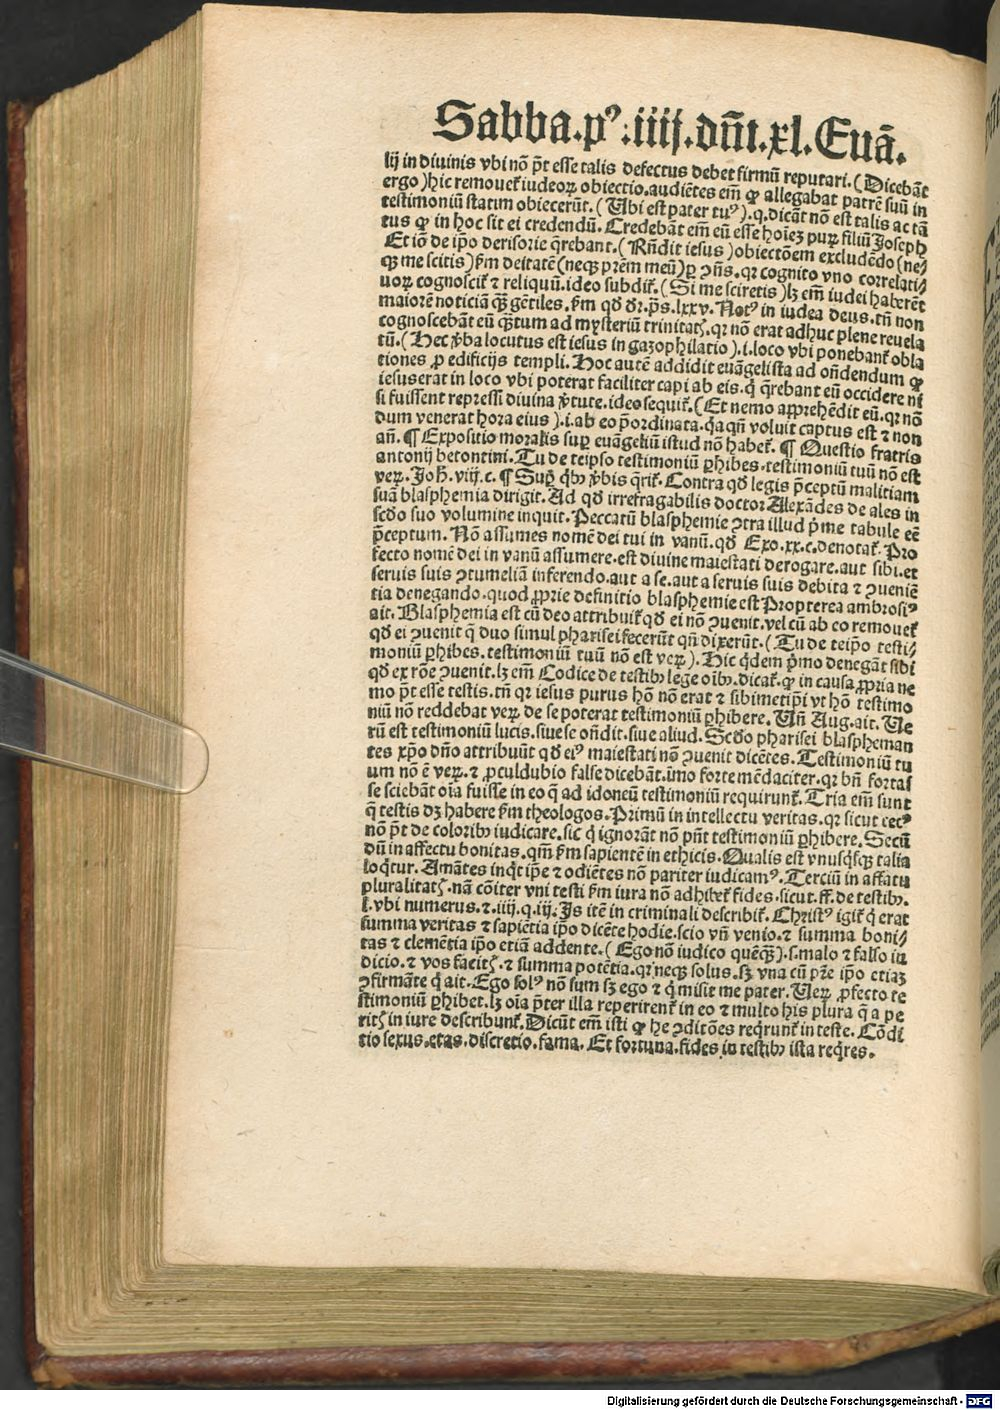 Sabba.pꝰ.iiij.dñi.xl.Euā.
lij in diuinis vbi nō p̄t esse talis defectus debet firmū reputari.(Dicebāt
ergo)hic remouet̄ iudeoꝝ obiectio.audiētes em̄ ꝙ allegabat patrē suū in
testimoniū statim obiecerūt.(Ubi est pater tuꝰ).q.dicāt nō est talis ac tā
tus ꝙ in hoc sit ei credendū. Credebāt em̄ eū esse hoīez puꝝ filiū Joseph
Et iō de ip̄o derisorie q̄rebant.(Rn̄dit iesus)obiectōem excludēdo(ne/
qꝫ me scitis)ẜm deitatē(neqꝫ pr̄em meū)ꝑ ꝯn̄s.qꝛ cognito vno correlati/
uoꝝ cognoscit̄ ⁊ reliquū.ideo subdit̄.(Si me sciretis)lꝫ em̄ iudei haberēt
maiorē noticiā qꝫ gētiles.ẜm qd̄ dꝛ.ps̄.lxxv.Notꝰ in iudea deus.tn̄ non
cognoscebāt eū qꝫtum ad mysteriū trinitatꝭ.qꝛ nō erat adhuc plene reuela
tū.(Hec v̄ba locutus est iesus in gazophilatio).i.loco vbi ponebant̄ obla
tiones ꝓ edificijs templi.Hoc autē addidit euāgelista ad on̄dendum ꝙ
iesus erat in loco vbi poterat faciliter capi ab eis.q̇ q̄rebant eū occidere ni
si fuissent repressi diuina v̄tute.ideo sequit̄.(Et nemo apprehēdit eū.qꝛ nō
dum venerat hora eius).i.ab eo p̄ordinata.q̇a qn̄ voluit captus est ⁊ non
an̄.¶ Expositio moralis suꝑ euāgeliū istud nō habet̄.¶ Questio fratris
antonij betontini.Tu de teipso testimoniū ꝑhibes.testimoniū tuū nō est
veꝝ.Joh̄.viij.c.¶ Suꝑ q̇bꝫ v̄bis q̄rit̄.Contra qd̄ legis p̄ceptū malitiam
suā blasphemia dirigit.Ad qd̄ irrefragabilis doctor Alexādes de ales in
scd̄o suo volumine inquit.Peccatū blasphemie ꝯtra illud p̄me tabule eē
p̄ceptum.Nō assumes nomē dei tui in vanū.qd̄ Exo.xx.c.denotat̄.Pro
fecto nomē dei in vanū assumere.est diuine maiestati derogare.aut sibi.et
seruis suis ꝯtumeliā inferendo.aut a se.aut a seruis suis debita ⁊ ꝯueniē
tia denegando.quod ꝓprie definitio blasphemie est Propterea ambrosiꝰ
ait.Blasphemia est cū deo attribuit̄ qd̄ ei nō ꝯuenit.vel cū ab eo remouet̄
qd̄ ei ꝯuenit q̄ duo simul pharisei fecerūt qn̄ dixerūt.(Tu de teip̄o testi/
moniū ꝑhibes.testimoniū tuū nō est veꝝ).Hic q̇dem p̄mo denegāt sibi
qd̄ ex rōe ꝯuenit.lꝫ em̄ Codice de testibꝫ lege oībꝫ.dicat̄.ꝙ in causa ꝓpria ne
mo p̄t esse testis.tn̄ qꝛ iesus purus hō nō erat ⁊ sibimetip̄i vt hō testimo
niū nō reddebat veꝝ de se poterat testimoniū ꝑhibere.Un̄ Aug.ait.Ue
rū est testimoniū lucis.siue se on̄dit.siue aliud.Scd̄o pharisei blaspheman
tes xp̄o dn̄o attribuūt qd̄ eiꝰ maiestati nō ꝯuenit dicētes.Testimoniū tu
um nō ē veꝝ.⁊ ꝓculdubio false dicebāt.īmo forte mēdaciter.qꝛ bn̄ fortas
se sciebāt oīa fuisse in eo q̄ ad idoneū testimoniū requirunt̄.Tria em̄ sunt
q̄ testis dꝫ habere ẜm theologos.Primū in intellectu veritas.qꝛ sicut cecꝰ
nō p̄t de coloribꝫ iudicare.sic q̇ ignorāt nō pn̄t testimoniū ꝑhibere.Secū
dū in affectu bonitas.qm̄ ẜm sapientē in ethicis.Qualis est vnusq̇sqꝫ talia
loq̇tur.Amātes inq̇t ip̄e ⁊ odiētes nō pariter iudicamꝰ.Terciū in affatu
pluralitatꝭ.nā cōiter vni testi ẜm iura nō adhibet̄ fides.sicut.ff.de testibꝫ.
l.vbi numerus.⁊.iiij.q.iij.Js itē in criminali describit̄.Christꝰ igit̄ q̇ erat
summa veritas ⁊ sapiētia ip̄o dicēte hodie.scio vn̄ venio.⁊ summa boni/
tas ⁊ clemētia ip̄o etiā addente.(Ego nō iudico quēqꝫ).s.malo ⁊ falso iu
dicio.⁊ vos facitꝭ.⁊ summa potētia.qꝛ neqꝫ solus.sꝫ vna cū pr̄e ip̄o etiaꝫ
ꝯfirmāte q̇ ait.Ego solꝰ nō sum sꝫ ego ⁊ q̇ misit me pater.Ueꝝ ꝓfecto te
stimoniū ꝑhibet.lꝫ oīa p̄ter illa reperirent̄ in eo ⁊ multo his plura q̄ a pe
ritꝭ in iure describunt̄.Dicūt em̄ isti ꝙ he ꝯditōes req̇runt̄ in teste. Cōdi
tio sexus.etas.discretio.fama. Et fortuna.fides in testibꝫ ista req̇res.
Digitalisierung gefördert durch die Deutsche Forschungsgemeinschaft - DFG